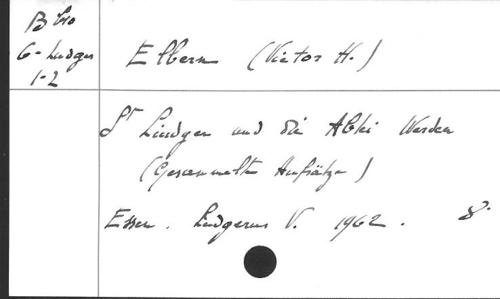 B bio
G- Ludger
1-2
Elbern (Victor H.)
St Liudger und die Abtei Werden
(Gesammelte Aufsätze)
Essen. Ludgerus V. 1962. 8°